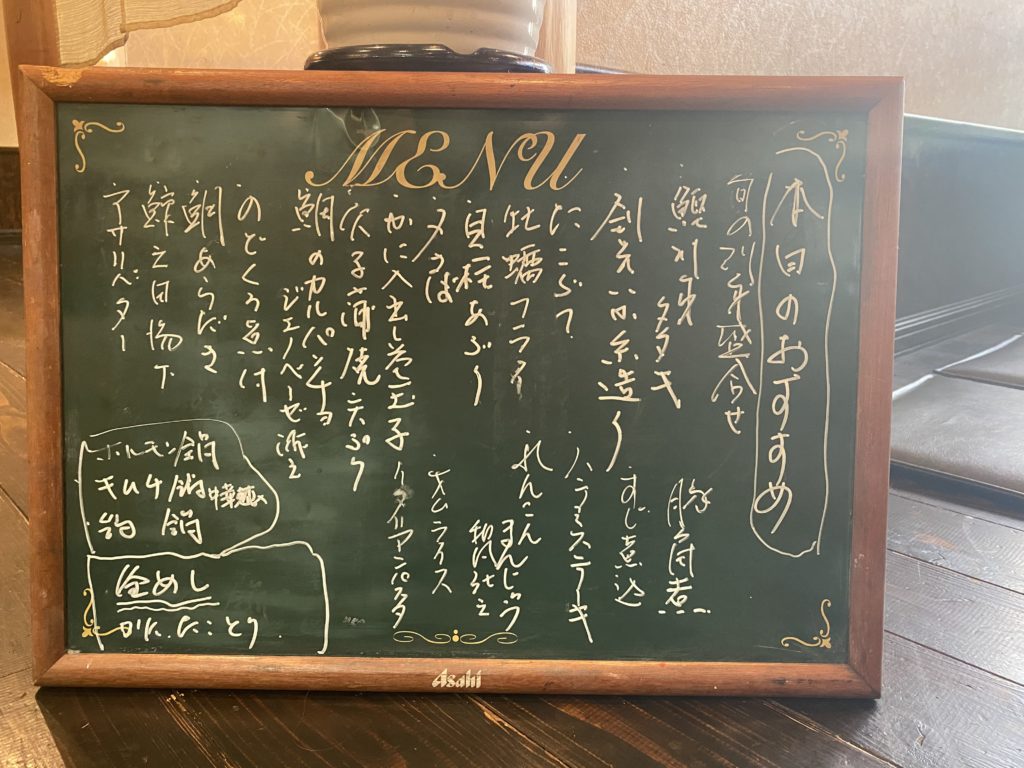 MENU
本日のおすすめ
旬の刺身盛合せ
鰹刺身 タタキ
剣先いか糸造り
たこぶつ
牡蠣フライ
貝柱あぶり
〆さば
かに入出し巻玉子
穴子蒲焼 天ぷら
鯛のカルパッチョ
ジェノベーゼ添え
のどくろ煮付
鯛あらだき
アサリバター
豚角煮
すじ煮込
ハラミステーキ
れんこんまんじゅう
オムライス
イタリアンパスタ
ホルモン鍋
キムチ鍋 中華麺入
鍋
釜めし
かに たこ とり
Asahi